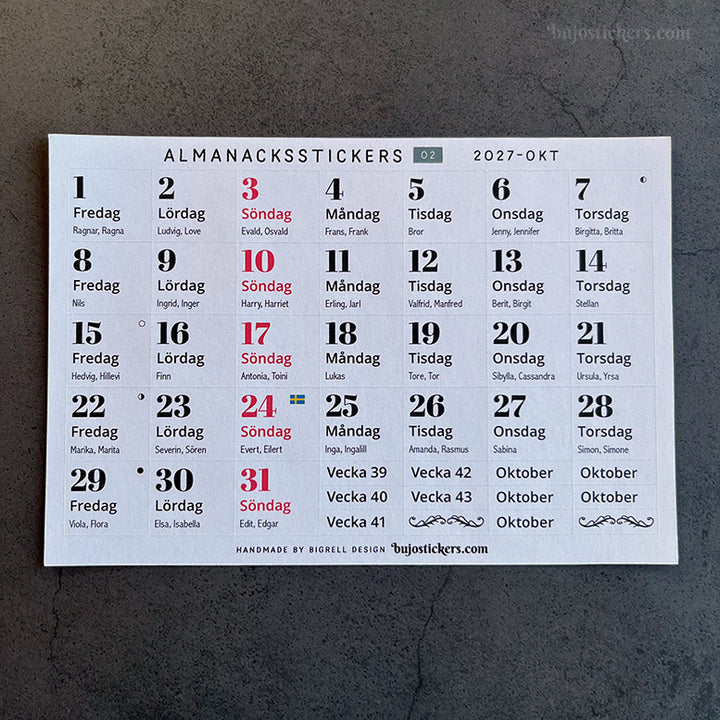 bujostickers.com
ALMANACKSSTICKERS 02 2027-OKT
1 2 3 4 5 6 7
Fredag Lördag Söndag Måndag Tisdag Onsdag Torsdag
Ragnar, Ragna Ludvig, Love Evald, Osvald Frans, Frank Bror Jenny, Jennifer Birgitta, Britta
8 9 10 11 12 13 14
Fredag Lördag Söndag Måndag Tisdag Onsdag Torsdag
Nils Ingrid, Inger Harry, Harriet Erling, Jarl Valfrid, Manfred Berit, Birgit Stellan
15 16 17 18 19 20 21
Fredag Lördag Söndag Måndag Tisdag Onsdag Torsdag
Hedvig, Hillevi Finn Antonia, Toini Lukas Tore, Tor Sibylla, Cassandra Ursula, Yrsa
22 23 24 25 26 27 28
Fredag Lördag Söndag Måndag Tisdag Onsdag Torsdag
Marika, Marita Severin, Sören Evert, Eilert Inga, Ingalill Amanda, Rasmus Sabina Simon, Simone
29 30 31
Fredag Lördag Söndag
Viola, Flora Elsa, Isabella Edit, Edgar
Vecka 39 Vecka 42 Oktober Oktober
Vecka 40 Vecka 43 Oktober Oktober
Vecka 41 Oktober
HANDMADE BY BIGRELL DESIGN bujostickers.com